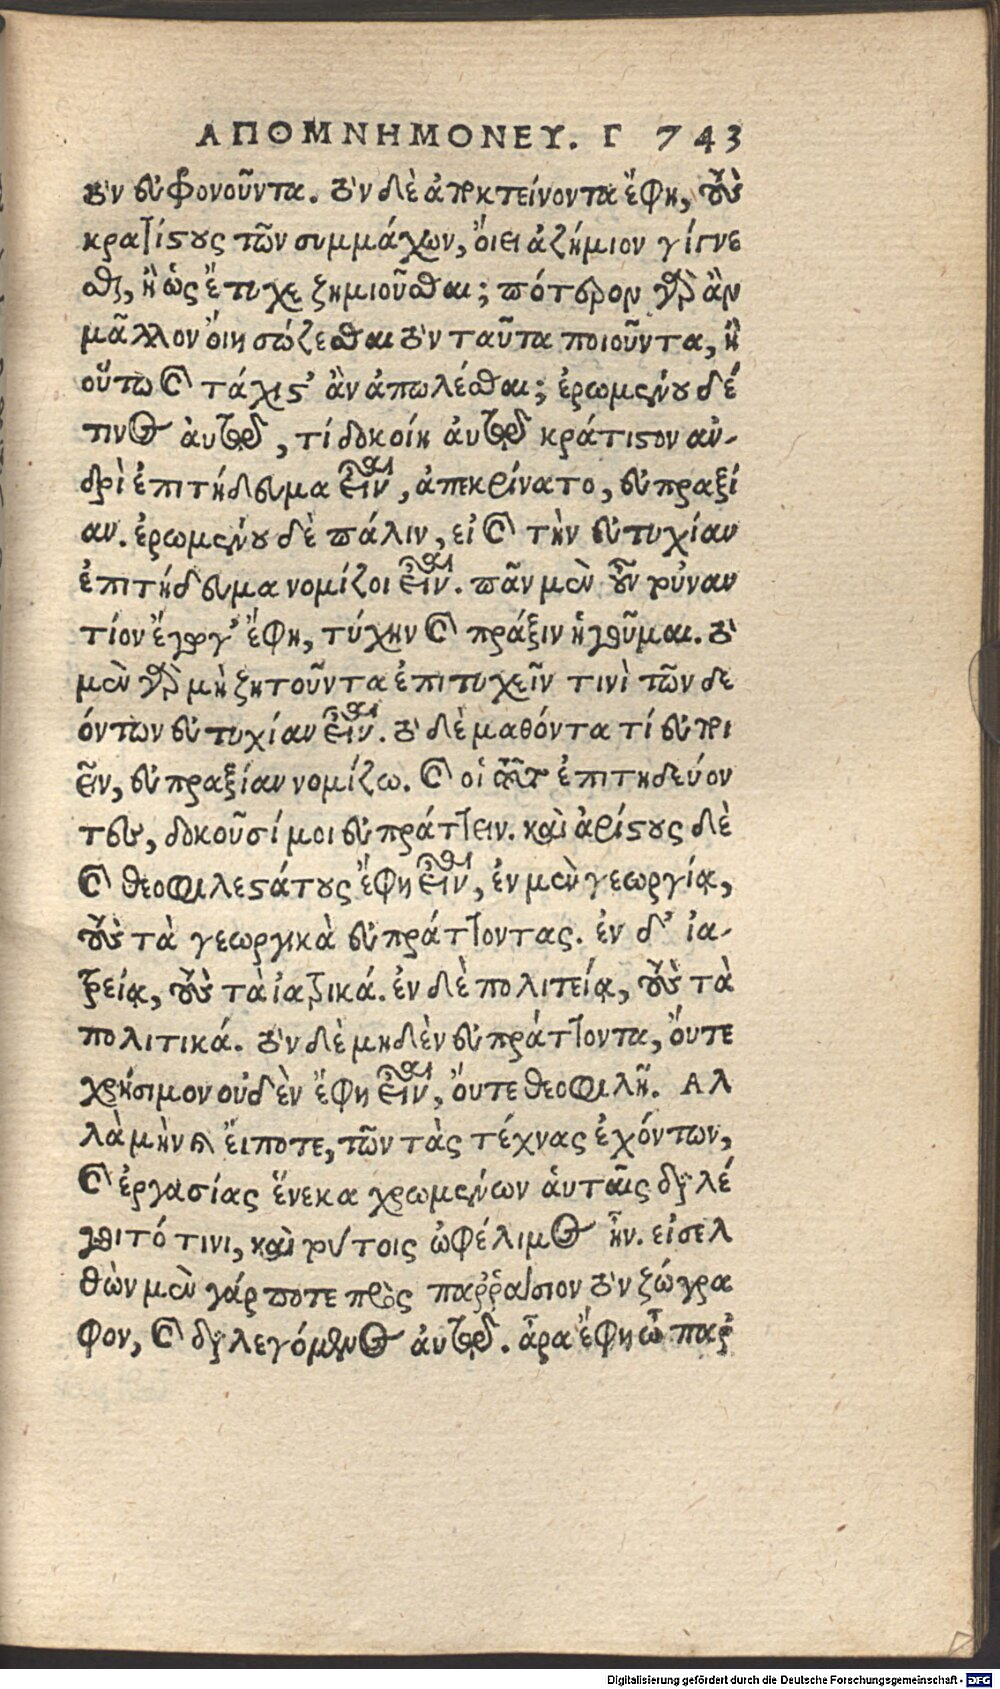 ΑΠΟΜΝΗΜΟΝΕΥ. Γ 743
τὸν εὐφρονοῦντα. τὸν δὲ ἀποκτείνοντα ἔφη, τοὺς
κρατίστους τῶν συμμάχων, ὄιει ἀζήμιον γίγνε
σθαι, ἢ ὡς ἔτυχε ζημιοῦσθαι; πότερον γὰρ ἂν
μᾶλλον ὄιη σώζεσθαι τὸν ταῦτα ποιοῦντα, ἢ
οὕτω καὶ τάχιστ’ ἂν ἀπωλέσθαι; ἐρωμένου δέ
τινος ἀυτὸν, τί δοκοίη ἀυτῷ κράτιστον ἀν-
δρὶ ἐπιτήδευμα εἶναι, ἀπεκρίνατο, εὐπραξί
αν. ἐρωμένου δὲ πάλιν, εἰ καὶ τὴν εὐτυχίαν
ἐπιτήδευμα νομίζοι εἶναι. πᾶν μὲν οὖν τοὐναν
τίον ἔγωγ’ ἔφη, τύχην καὶ πράξιν ἡγοῦμαι. τὸ
μὲν γὰρ μὴ ζητοῦντα ἐπιτυχεῖν τινὶ τῶν δε
όντων εὐτυχίαν εἶναι. τὸ δὲ μαθόντα τί εὐποι
εῖν, εὐπραξίαν νομίζω. καὶ οἱ τοῦτο ἐπιτηδεύον
τες, δοκοῦσί μοι εὐπράττειν. καὶ ἀρίστους δὲ
καὶ θεοφιλεστάτους ἔφη εἶναι, ἐν μὲν γεωργίᾳ,
τοὺς τὰ γεωργικὰ εὐπράττοντας. ἐν δ’ ἰα-
τρείᾳ, τοὺς τὰ ἰατρικά. ἐν δὲ πολιτείᾳ, τοὺς τὰ
πολιτικά. τὸν δὲ μηδὲν εὐπράττοντα, ὄυτε
χρήσιμον οὐδὲν ἔφη εἶναι, ὄυτε θεοφιλῆ. Αλ
λὰ μὴν καὶ ἔιποτε, τῶν τὰς τέχνας ἐχόντων,
καὶ ἐργασίας ἕνεκα χρωμένων ἁυταῖς διαλέ
γοιτό τινι, καὶ τούτοις ὠφέλιμος ἦν. εἰσελ
θὼν μὲν γάρ ποτε πρὸς παῤῥάσιον τὸν ζώγρα
φον, καὶ διαλεγόμενος ἀυτῷ. ἆρα ἔφη ὦ παῤ